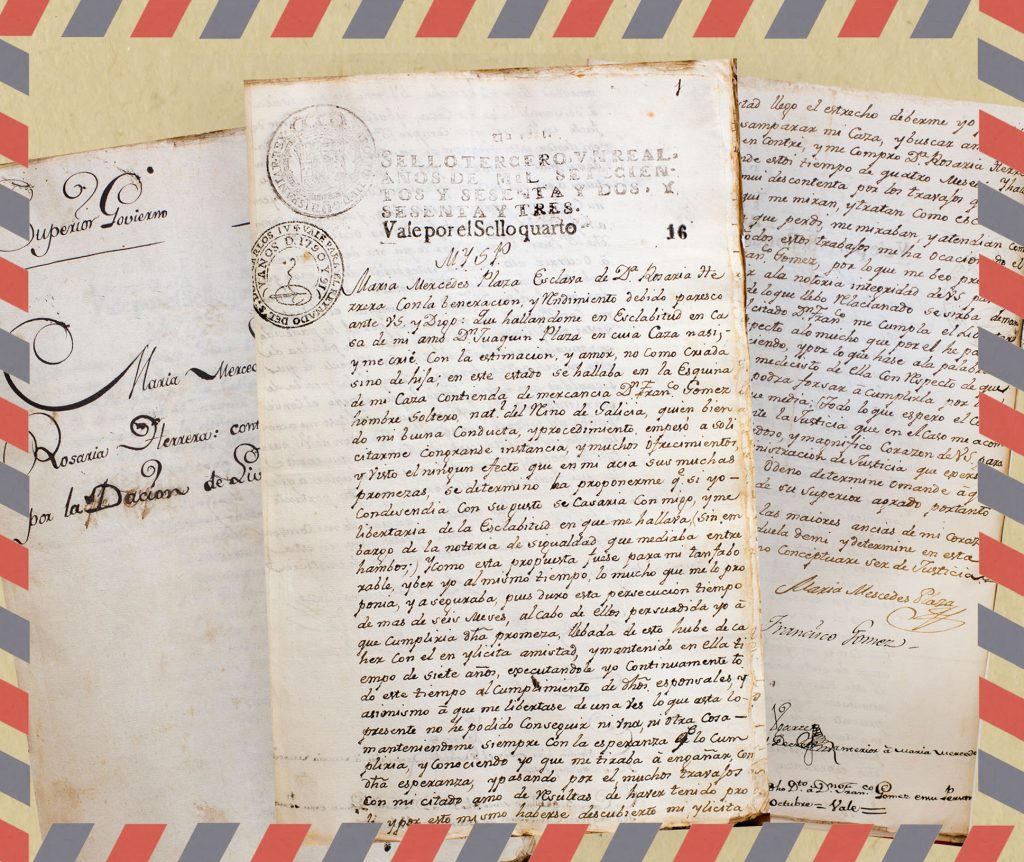 Superior Govierno
Maria Merced
Rosaria Herrera: cont
por la Dacion de Liv
1
SELLO TERCERO VN REAL,
AÑOS DE MIL SETECIEN-
TOS Y SESENTA Y DOS, Y
SESENTA Y TRES.
Vale por el Sello quarto
16
CARLOS IV S VALE PARA EL REYNADO DEL S. D.
Y AÑOS D. 1790 Y 91
M Y S P.
Maria Mercedes Plaza Esclava de Dª Rosaria He
rrera Con la beneracion, y Rendimiento debido paresco
ante VS. y Digo: que hallandome en Esclabitud en ca
sa de mi amo Dn Juaquin Plaza en cuia Caza nasi;
y me crié, Con la estimacion, y amor, no como criada
sino de hija; en este estado se hallaba en la Esquina
de mi Caza con tienda de mercancia Dn Franco Gomez
hombre Soltero, natl del Reino de Galicia, quien bien
do mi buena Conducta, y procedimiento, empesó a soli
citarme Con grande instancia, y muchos Ofrecimientos
y Visto el ningun efecto que en mi acia sus muchas
promezas, se determino ha proponerme q. si yo
Condesendia Con su gusto se Casaria Con migo, y me
libertaria de la Esclabitud en que me hallava, (sin em
bargo de la notoria de sigualdad que mediaba entre
hambos;) Y como esta propuesta fuese para mi tan fabo
rable, y ber yo al mismo tiempo, lo mucho que me lo pro
ponia, y aseguraba, pues duró esta persecucion tiempo
de mas de séis Meses, al Cabo de Ellos persuadida yo á
que Cumpliria dha promeza, llebada de esto hube de ca
her Con el en ylicita amistad, y mantenido en Ella ti
empo de siete años, executandole yo Continuamente to
do este tiempo al Cumplimiento de dhos esponsales, y
asi mismo á que me libertase de una Ves lo que asta lo
presente no he podido Conseguir ni una ni otra Cosa
manteniendome siempre Con la esperanza q. lo Cum
pliria, y Conociendo yo que me tiraba a engañar, con
dha esperanza, y pasando por el muchos travajos
Con mi citado amo de Resultas de haver tenido pro
li y por esto mismo haberse descubierto mi ylicita
tad llego el estrecho deberme yo
samparar mi Caza, y buscar am
en contré, y me Compre Dª Rosaria Herre
nde estoi tiempo de quatro Meses
mui descontenta por los travajos q
qui me miran, y tratan como Escl
que perdi, me miraban, y atendian con
todos estos trabajos me ha Ocacion
Gomez, por lo que me beo pre
ar ala notoria integridad de VS. par
e lo que llebo Relacionado se sirba de man
citado Dn Franco me Cumpla el
specto alo mucho que por el he pa
ciendo, y por lo que hase ala palabra
medecisto de ella Con Respecto de que
podra forsar á Cumplirla por
que media; Todo lo que espero el Ce
ate la Justicia que en el Caso me acom
y magnifico Corazon de VS. para
nistracion de Justicia que espera
Odeno determine o mande á q
de su Superior agrado por tanto
las maiores ancias de mi Coraz
duela de mi y determine en esta
no Conceptuare ser de Justicia
Maria Mercedes Plaza
Francisco Gomez
á Maria Mercede
Gomez en su
Octubre = Vale =